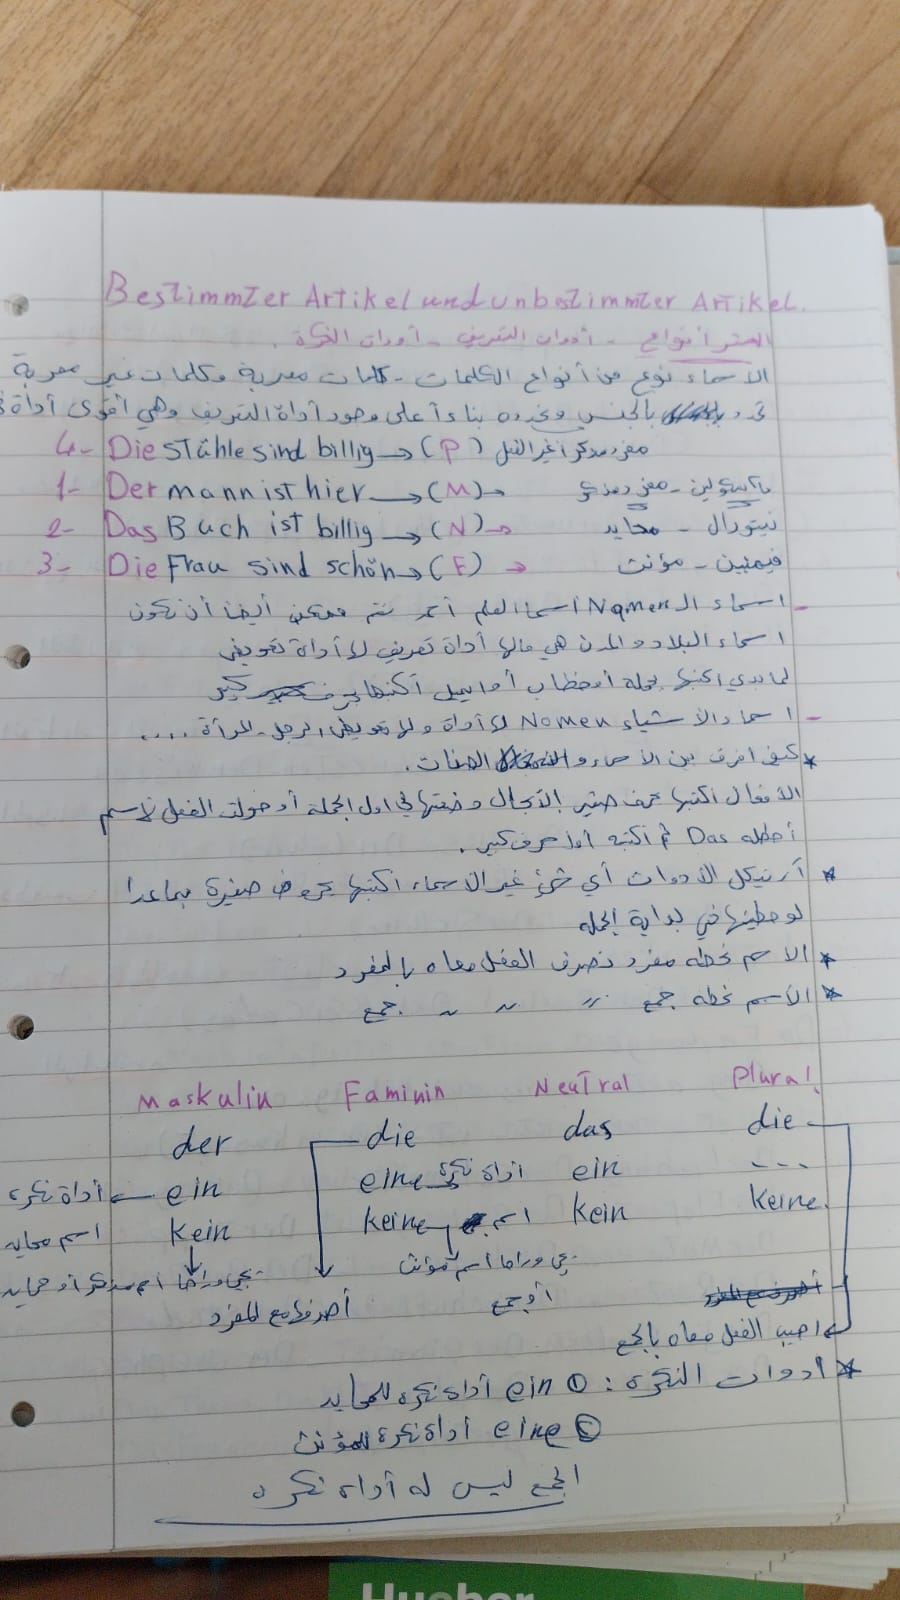 Bestimmter Artikel und unbestimmter Artikel.
أنواع - أدوات التعريف - أدوات النكرة.
الأسماء نوع من أنواع الكلمات - كلمات معربة وكلمات غير معربة
بالجنس وتحدده بناءاً على وجود أداة التعريف وهي أقوى أداة
4- Die Stühle sind billig → (P)
1- Der mann ist hier → (M) → ماسكولين - مفرد مذكر
2- Das Buch ist billig → (N) → نيتورال - محايد
3- Die Frau sind schön → (F) → فيمنين - مؤنث
- اسماء الـ Namen اسماء العلم أحمد ممكن أيضاً أن تكون
اسماء البلاد والمدن هي مالها أداة تعريف
لما بدي اكتبها بجملة أو خطاب أو ايميل أكتبها بحرف كبير
- اسماء الأشياء Nomen الرجل - المرأة ....
* كيف افرق بين الأسماء و الصفات.
الأفعال اكتبها بحرف صغير في اول الجملة أو حولت الفعل لاسم
Das ثم أكتبه أول حرف كبير.
* آرتيكل الأدوات أي شيء غير الاسماء اكتبها بحروف صغيرة ماعدا
لو حطيتها في بداية الجمله
* الاسم نحطه مفرد نصرف الفعل معاه بالمفرد
* الاسم نحطه جمع 〃 〃 〃 جمع
Maskulin Faminin Neutral Plural.
der die das die
أداة نكره ← ein eine أداة نكرة ein ---
اسم محايد kein keine اسم kein keine.
يجي وراها اسم مذكر أو محايد
يجي وراها اسم مؤنث
أو جمع
أصرفها مع المفرد
اجيب الفعل معاه بالجمع
* ادوات النكره: ① ein أداة نكره للمحايد
② eine أداة نكرة للمؤنث
الجمع ليس له أداه نكره
Hueber